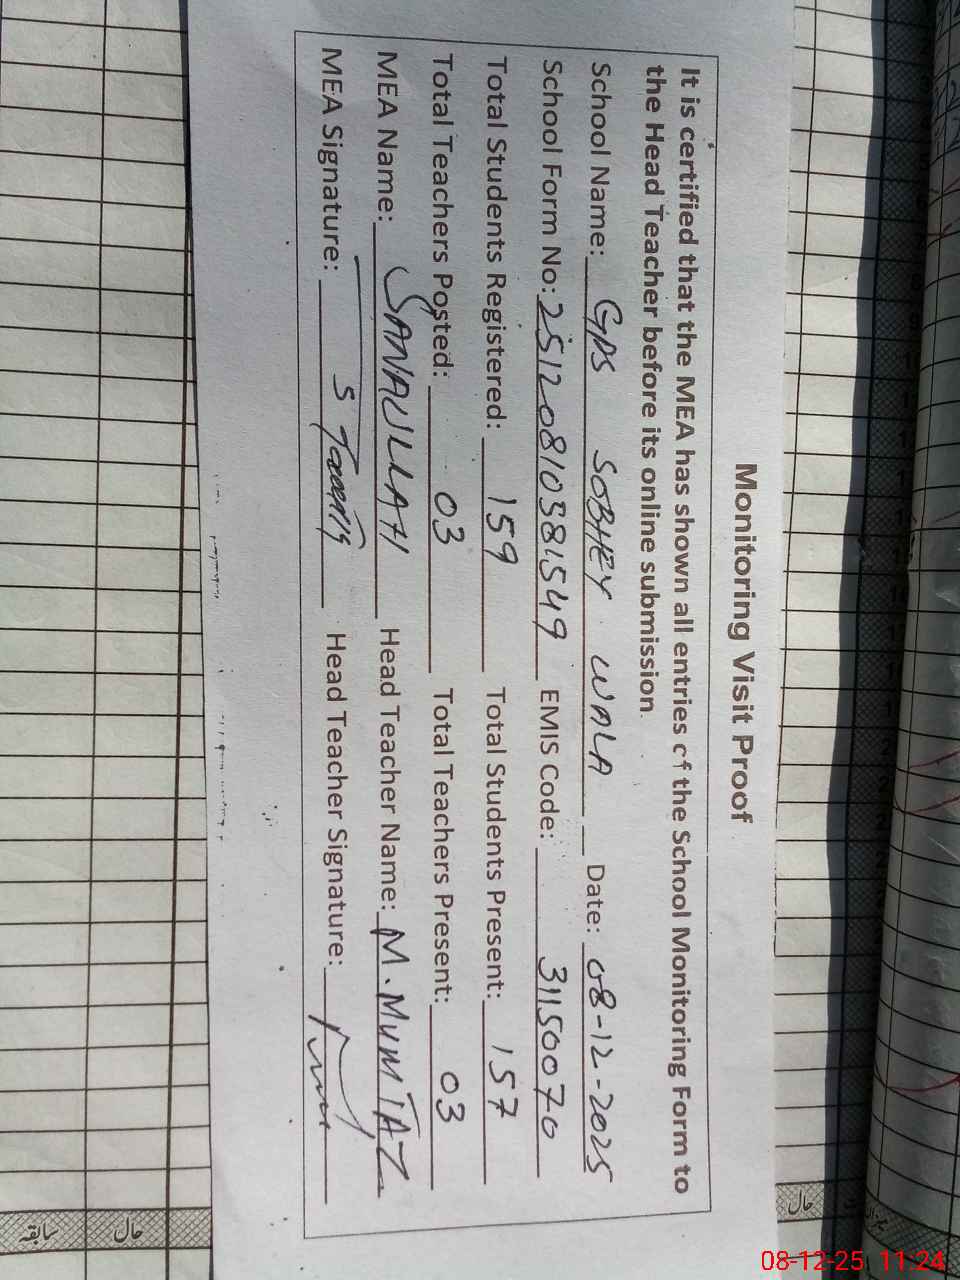 Monitoring Visit Proof
It is certified that the MEA has shown all entries of the School Monitoring Form to
the Head Teacher before its online submission.
School Name: GPS SOBHEY WALA Date: 08-12-2025
School Form No: 25120810381549 EMIS Code: 31150070
Total Students Registered: 159 Total Students Present: 157
Total Teachers Posted: 03 Total Teachers Present: 03
MEA Name: SANAULLAH Head Teacher Name: M. MUMTAZ
MEA Signature: Head Teacher Signature:
حال
حال
سابقہ
08-12-25 11:24